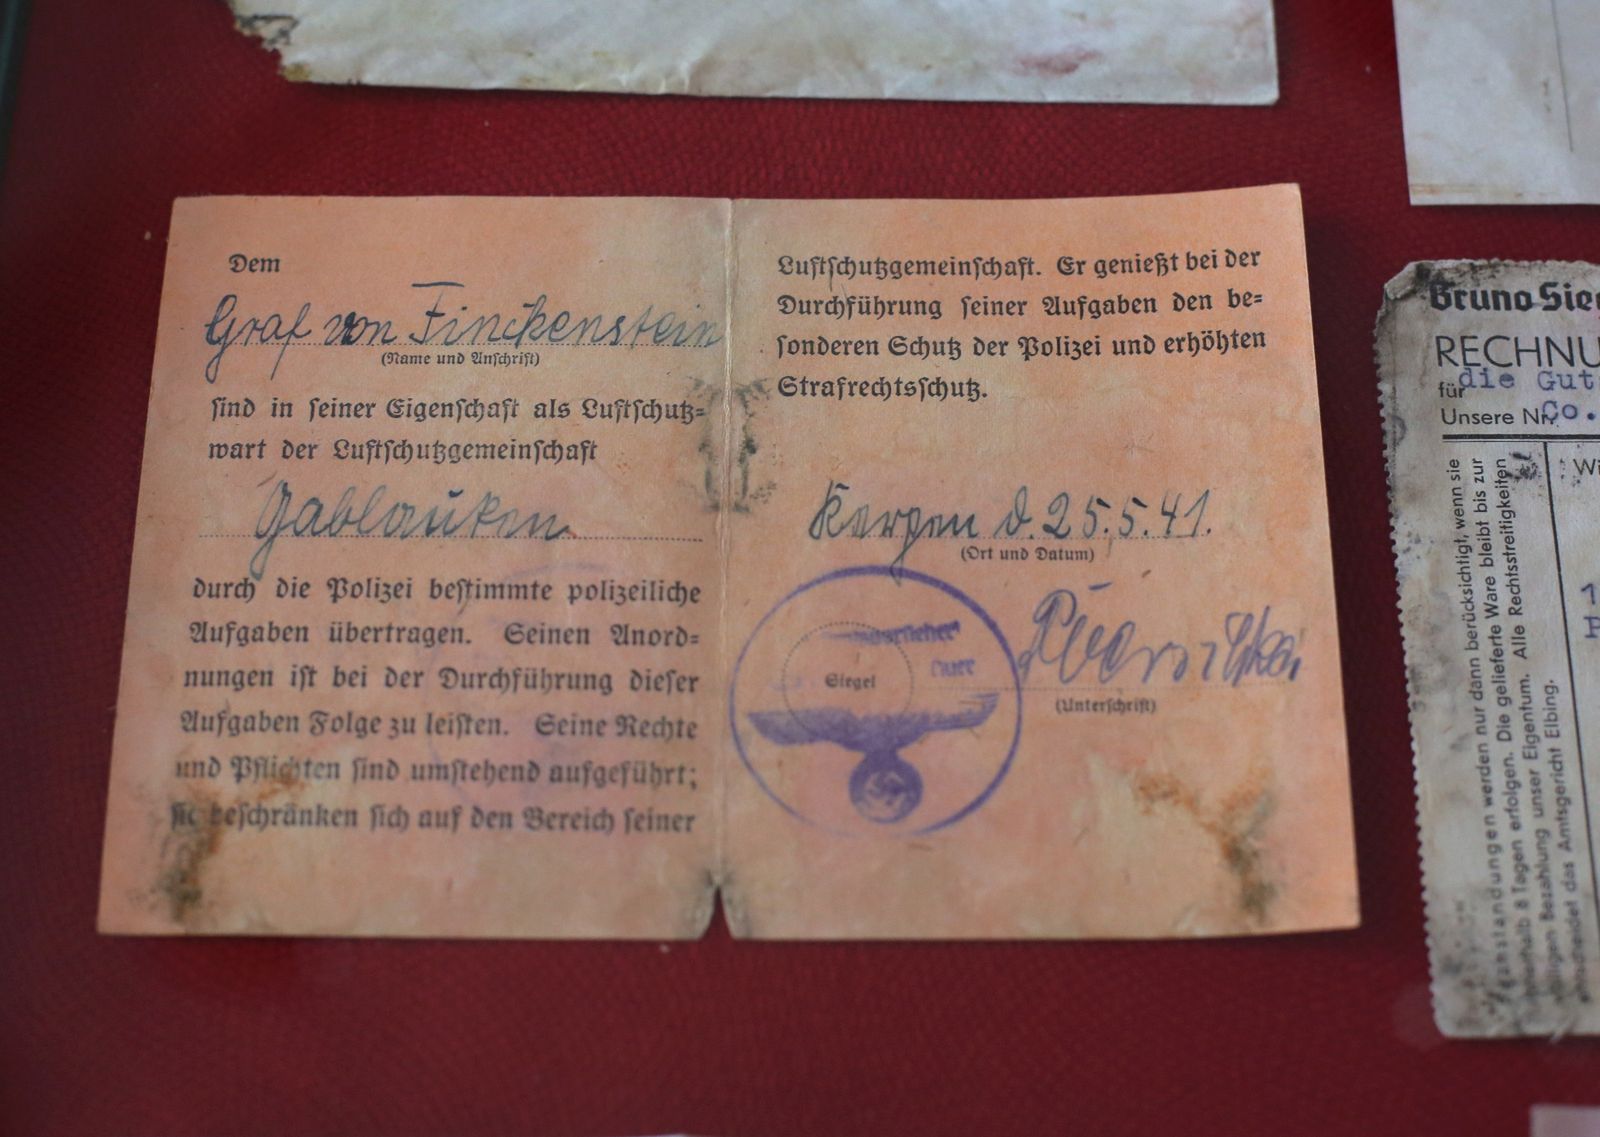 Dem
Graf von Finckenstein
(Name und Anschrift)
sind in seiner Eigenschaft als Luftschutz=
wart der Luftschutzgemeinschaft
Gablauken
durch die Polizei bestimmte polizeiliche
Aufgaben übertragen. Seinen Anord=
nungen ist bei der Durchführung dieser
Aufgaben Folge zu leisten. Seine Rechte
und Pflichten sind umstehend aufgeführt;
sie beschränken sich auf den Bereich seiner
Luftschutzgemeinschaft. Er genießt bei der
Durchführung seiner Aufgaben den be=
sonderen Schutz der Polizei und erhöhten
Strafrechtsschutz.
d. 25.5.41.
(Ort und Datum)
Siegel
(Unterschrift)
Bruno Sie
RECHNU
für die Gut
Unsere Nr. Co.
Wi
werden nur dann berücksichtigt, wenn sie
innerhalb 8 Tagen erfolgen. Die gelieferte Ware bleibt bis zur
völligen Bezahlung unser Eigentum. Alle Rechtsstreitigkeiten
entscheidet das Amtsgericht Elbing.